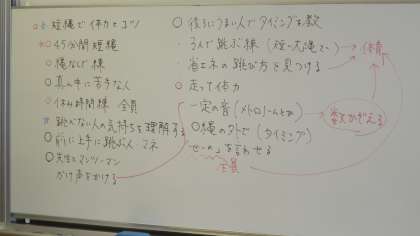 ○☆短縄で体力とコツ
○45分間短縄
○縄なしで練
○真ん中に苦手な人
○休み時間練 全員
跳べない人の気持ちを理解する
○前に上手に跳ぶ人 マネ
○先生とマンツーマン
かけ声をかける
○後ろにうまい人でタイミングを教
・3人で跳ぶ練(短→大縄で)
・省エネの跳び方を見つける
○走って体力
一定の音(メトロノームとか)
○縄の外で(タイミング)
"せーの"を言わせる
全員
体育
数かぞえる